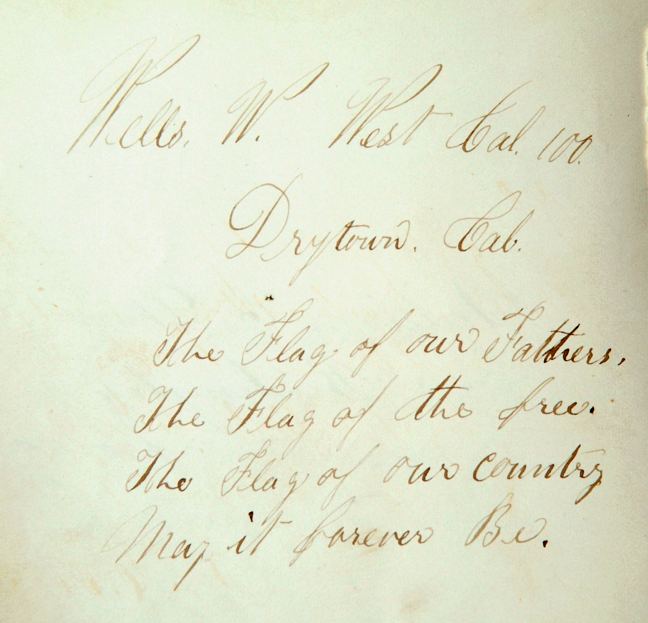 Wells. W. West Cal. 100.
Drytown. Cal.
The Flag of our Fathers,
The Flag of the free.
The Flag of our country
May it forever Be.